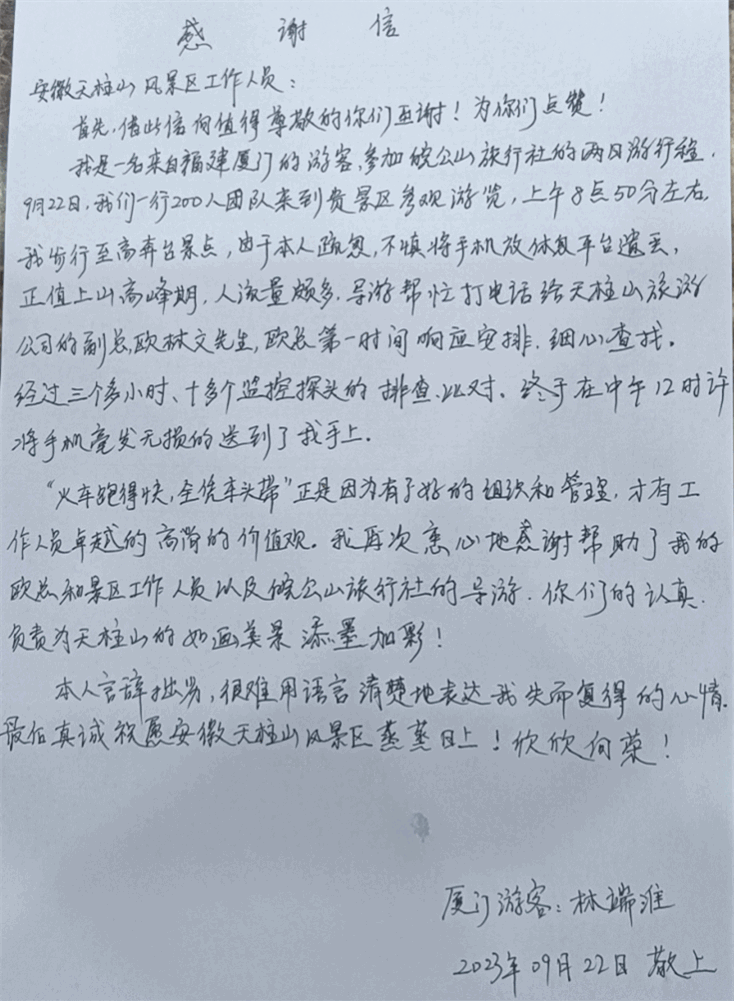 感谢信
安徽天柱山风景区工作人员：
首先，借此信向值得尊敬的你们致谢！为你们点赞！
我是一名来自福建厦门的游客，参加皖公山旅行社的两日游行程，
9月22日，我们一行200人团队来到贵景区参观游览，上午8点50分左右，
我步行至高弃台景点，由于本人疏忽，不慎将手机放休息平台遗丢，
正值上山高峰期，人流量颇多，导游帮忙打电话给天柱山旅游
公司的副总欧林文先生，欧总第一时间响应安排、细心查找。
经过三个多小时、十多个监控探头的排查、比对、终于在中午12时许
将手机毫发无损的送到了我手上。
“火车跑得快，全凭车头带”正是因为有了好的组织和管理，才有工
作人员卓越的高尚的价值观。我再次衷心地感谢帮助了我的
欧总和景区工作人员以及皖公山旅行社的导游．你们的认真、
负责为天柱山的如画美景添墨加彩！
本人言辞拙劣，很难用语言清楚地表达我失而复得的心情．
最后真诚祝愿安徽天柱山风景区蒸蒸日上！欣欣向荣！
厦门游客：林端淮
2023年09月22日 敬上